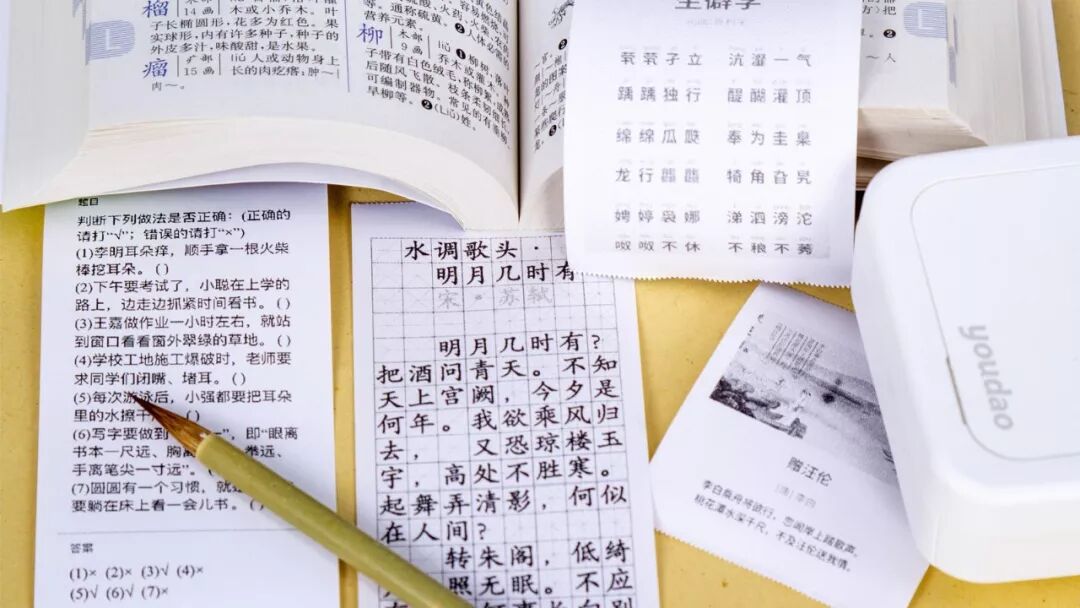 榴
14画
木或小乔木。
子长椭圆形，花多为红色。果
实球形，内有许多种子，种子的
外皮多汁，味酸甜，是水果。
瘤
疒部
15画
liú 人或动物身上
长的肉疙瘩：肿～
肉～。
L
营养元素。
柳
木部
9画
liǔ
子带有白色绒毛，
后随风飞散。枝条柔韧细长，
可编制器物。常见的有垂柳、
旱柳等。❷(Liǔ)姓。
生僻字
茕茕孑立 沆瀣一气
踽踽独行 醍醐灌顶
绵绵瓜瓞 奉为圭臬
龙行龘龘 犄角旮旯
娉婷袅娜 涕泗滂沱
呶呶不休 不稂不莠
题目
判断下列做法是否正确：(正确的
请打“√”；错误的请打“×”)
(1)李明耳朵痒，顺手拿一根火柴
棒挖耳朵。( )
(2)下午要考试了，小聪在上学的
路上，边走边抓紧时间看书。( )
(3)王嘉做作业一小时左右，就站
到窗口看看窗外翠绿的草地。( )
(4)学校工地施工爆破时，老师要
求同学们闭嘴、堵耳。( )
(5)每次游泳后，小强都要把耳朵
里的水擦干 ( )
(6)写字要做到 ”，即“眼离
书本一尺远、胸 拳远、
手离笔尖一寸远”。
(7)圆圆有一个习惯，就
要躺在床上看一会儿书。( )
答案
(1)× (2)× (3)√ (4)×
(5)√ (6)√ (7)×
水调歌头·
明月几时有
宋。苏轼
明月几时有？
把酒问青天。不知
天上宫阙，今夕是
何年。我欲乘风归
去，又恐琼楼玉
宇，高处不胜寒。
起舞弄清影，何似
在人间？
转朱阁，低绮
照无眠。不应
赠汪伦
[唐]李白
李白乘舟将欲行，忽闻岸上踏歌声。
桃花潭水深千尺，不及汪伦送我情。
youdao